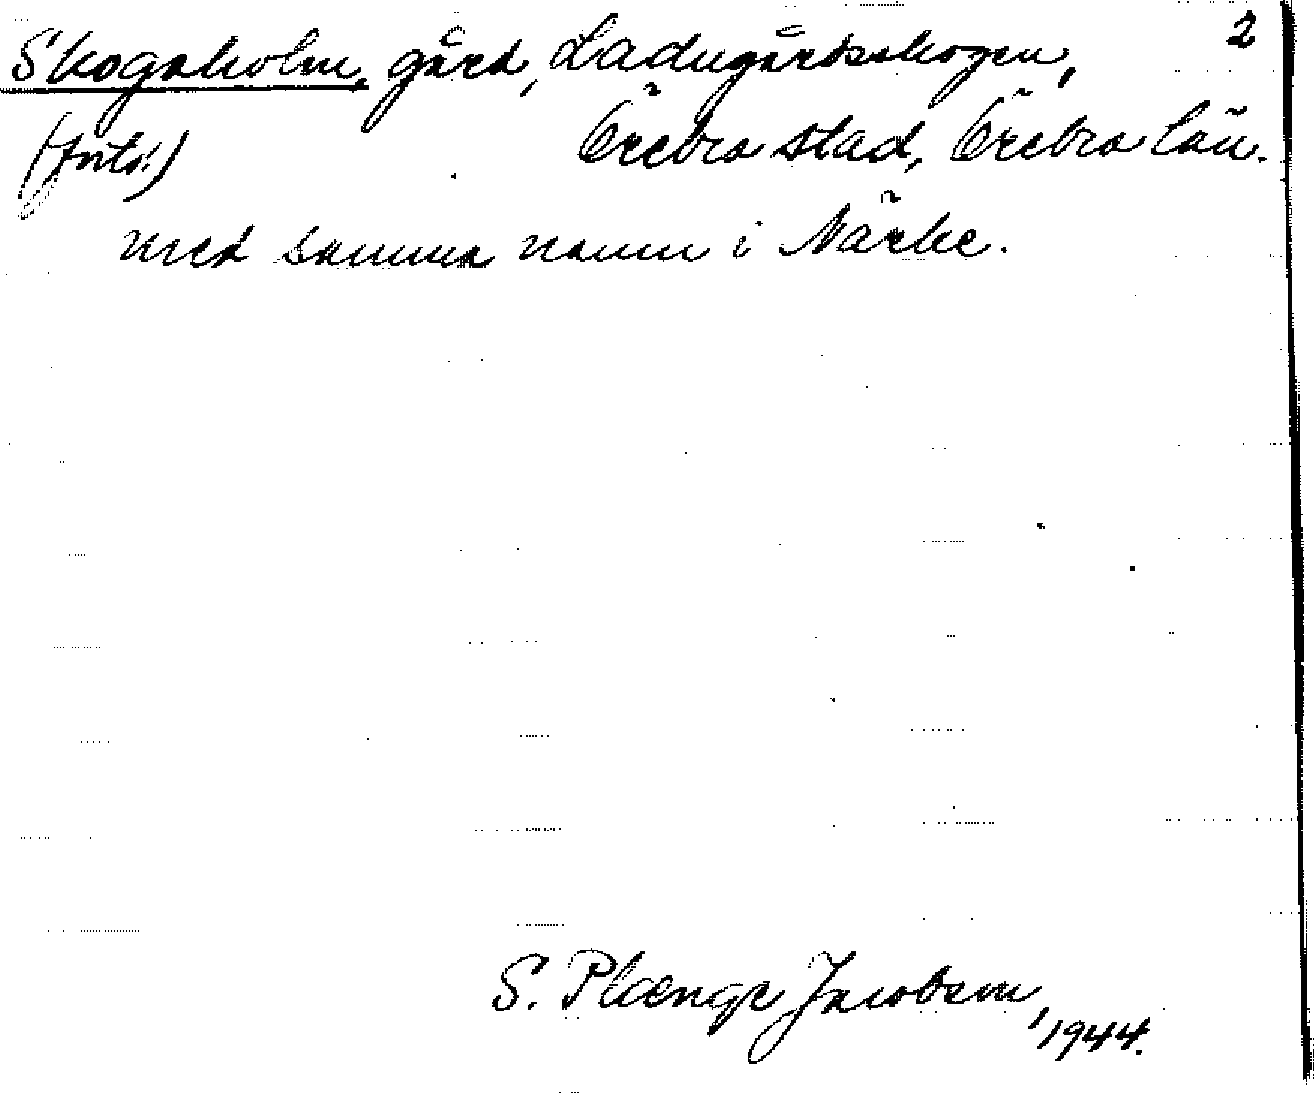 Skogaholm, gård, Ladugårdsskogen, 2
(forts.) Örebro stad, Örebro län.
med samma namn i Närke.
S. Plænge Jacobson,
1944.